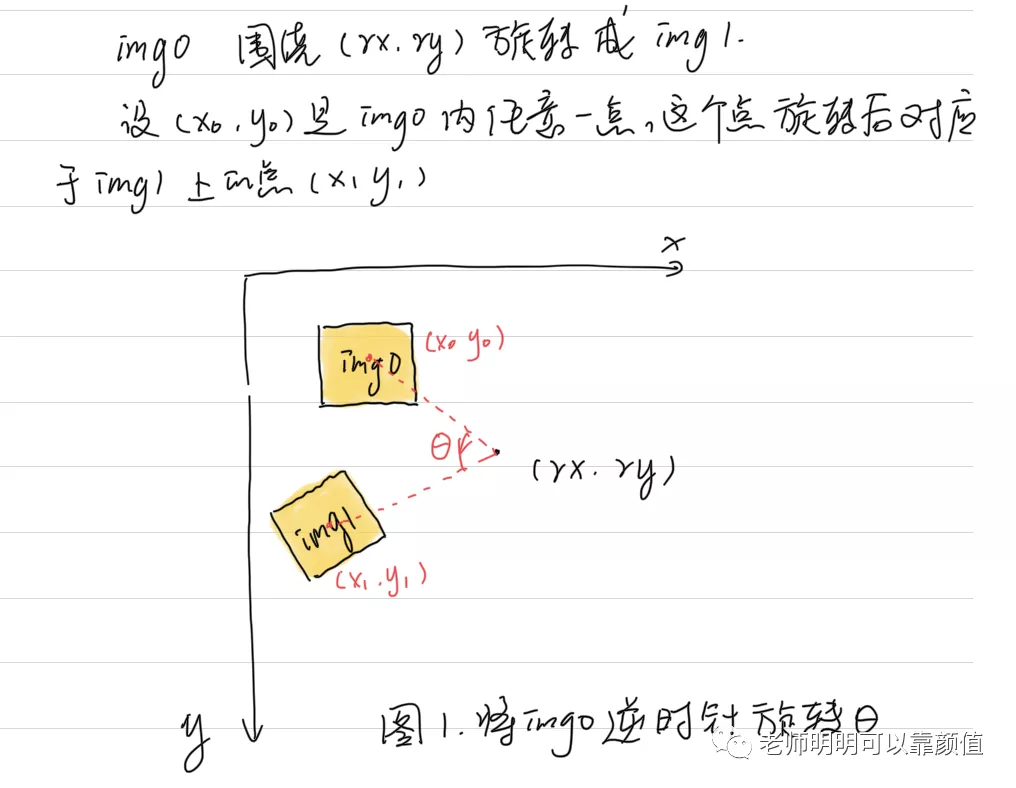 img0 围绕(rx.ry)旋转成 img1.
设(x₀.y₀)是img0内任意一点,这个点旋转后对应
于img1上的点(x₁ y₁)
x
img0
(x₀ y₀)
θ
(rx.ry)
img1
(x₁.y₁)
y
图1.将img0逆时针旋转θ
老师明明可以靠颜值